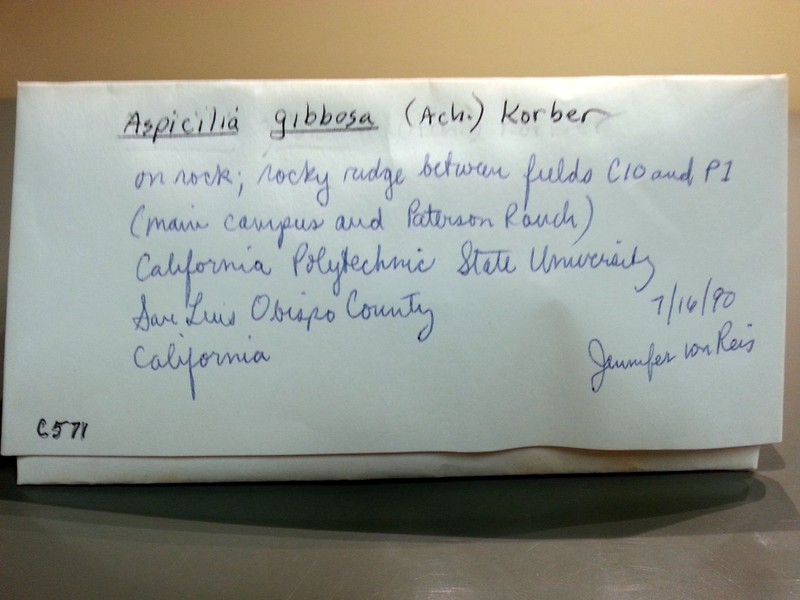 Aspicilia gibbosa (Ach.) Korber
on rock; rocky ridge between fields C10 and P1
(main campus and Paterson Ranch)
California Polytechnic State University
San Luis Obispo County
7/16/90
California
Jennifer von Reis
C571